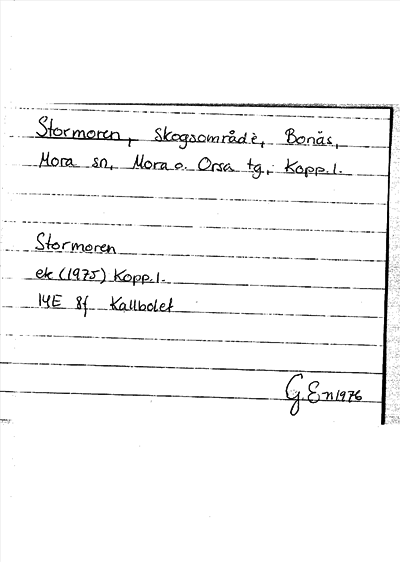 Stormoren, skogsområde, Bonäs,
Mora sn, Mora o. Orsa tg, Kopp.l.
Stormoren
ek (1975) Kopp.l.
14E 8f Kallbolet
G.En 1976